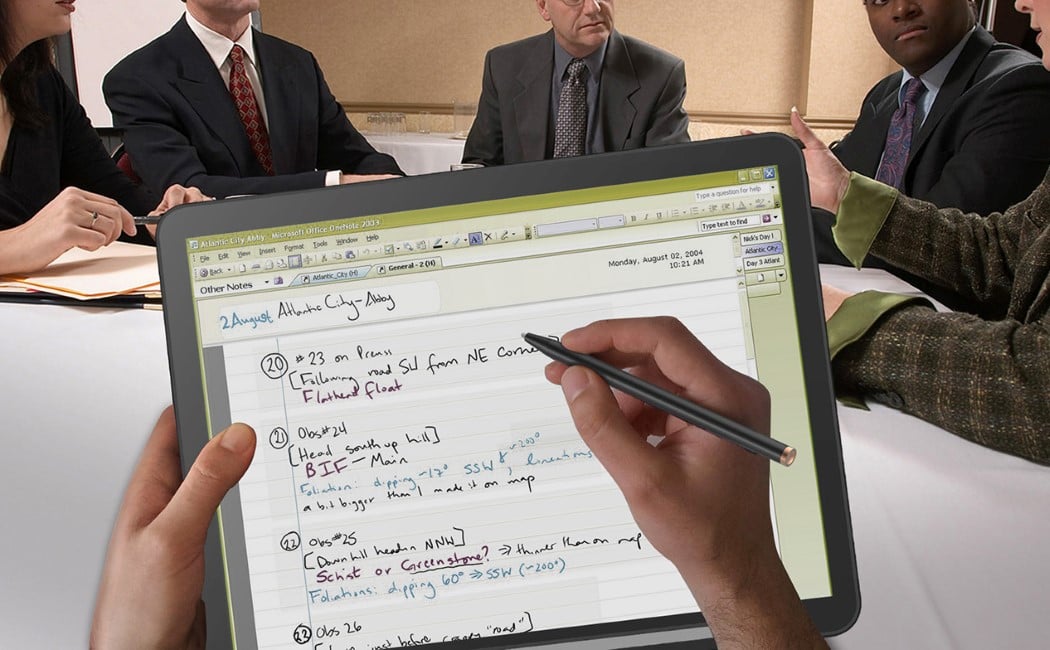 Atlantic City Abby - Microsoft Office OneNote 2003
Type a question for help
File Edit View Insert Format Tools Window Help
Back
Type text to find
Other Notes
Atlantic_City (H)
General - 2 (H)
Nick's Day 1
Atlantic City-
Day 3 Atlant
Monday, August 02, 2004
10:21 AM
2 August Atlantic City-Abby
20 #23 on
[Following road SW from NE corner]
Flathead float
21 Obs#24
[Head south up hill]
BIF - Main
Foliation: dipping ~17° SSW ~200°; lineations
a bit bigger than I made it on map
22 Obs#25
[Down hill headin NNW]
Schist or Greenstone? → thinner than on map
Foliations: dipping 60° → SSW (~200°)
22 Obs 26
just before "road"]